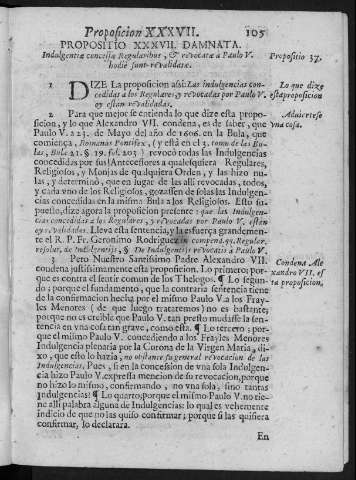 Proposicion XXXVII. 105
PROPOSITIO XXXVII. DAMNATA.
Indulgentiæ concessæ Regularibus, & revocatæ à Paulo V.
hodiè sunt revalidatæ.
Propositio 37.
1 DIZE La proposicion assi: Las indulgencias con-
cedidas a los Regulares, y revocadas por Paulo V.
oy estàn revalidadas.
Lo que dize
esta proposicion
2 Para que mejor se entienda lo que dize esta propo-
sicion, y lo que Alexandro VII. condena, es de saber, que
Paulo V. a 23. de Mayo del año de 1606. en la Bula, que
comiença, Romanus Pontifex, (y està en el 3. tomo de las Bu-
las, Bula 21. §. 19. fol. 203) revocò todas las Indulgencias
concedidas por sus Antecessores a qualesquiera Regulares,
Religiosos, y Monjas de qualquiera Orden, y las hizo nu-
las, y determinò, que en lugar de las alli revocadas, todos,
y cada vno de los Religiosos, gozassen de solas las Indulgen-
cias concedidas en la misma Bula a los Religiosos. Esto su-
puesto, dize agora la proposicion presente: que las Indulgen-
cias concedidas a los Regulares, y revocadas por Paulo V. estàn
oy revalidadas. Lleva esta sentencia, y la esfuerça grandemen-
te el R. P. Fr. Geronimo Rodriguez in compend. qq. Regular.
resolut. de Indulgentijs, § De Indulgentijs revocatis à Paulo V.
Adviertese
vna cosa.
3 Pero Nuestro Santissimo Padre Alexandro VII.
condena justissimamente esta proposicion. Lo primero; por-
que es contra el sentir comun de los Theologos. ¶ Lo segun-
do; porque el fundamento, que la contraria sentencia tiene
de la confirmacion hecha por el mismo Paulo V. a los Fray-
les Menores (de que luego trataremos) no es bastante;
porque no es creible que Paulo V. tan presto mudasse la sen-
tencia en vna cosa tan grave, como esta. ¶ Lo tercero; por-
que el mismo Paulo V. concediendo a los Frayles Menores
Indulgencia plenaria por la Corona de la Virgen Maria, di-
xo, que esto lo hazia, no obstante su general revocacion de las
Indulgencias. Pues, si en la concession de vna sola Indulgen-
cia hizo Paulo V. expressa mencion de su revocacion, porque
no hizo lo mismo, confirmando, no vna sola, sino tantas
Indulgencias? ¶ Lo quarto, porque el mismo Paulo V. no tie-
ne alli palabra alguna de Indulgencias: lo qual es vehemente
indicio de que no las quiso confirmar; porque si las quisiera
confirmar, lo declarara.
Condena Ale
xandro VII. es
ta proposicion,
En